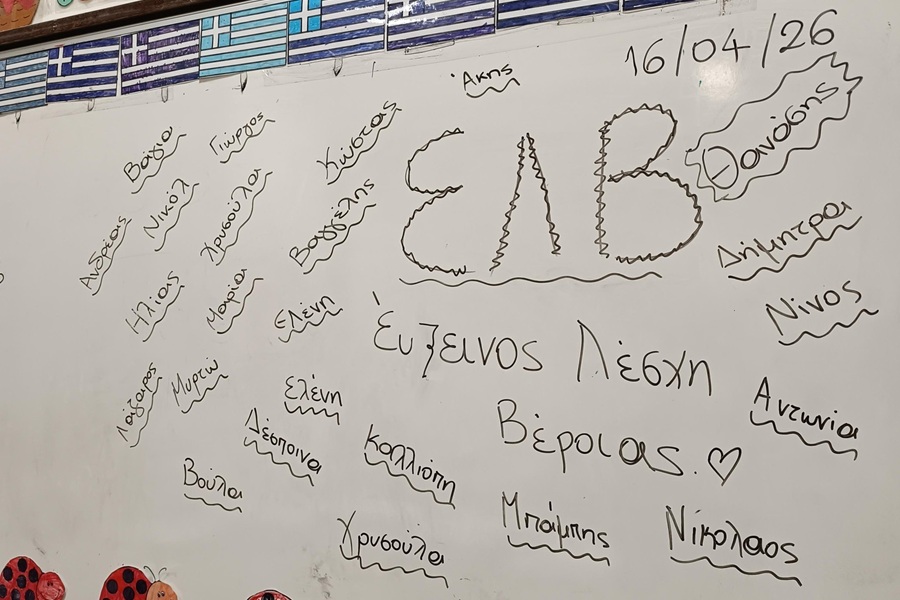 16/04/26
Άκης
Θανάσης
ΕΛΒ
Βάγια
Γιώργος
Κώστας
Ανδρέας
Νικόλ
Χρυσούλα
Βαγγέλης
Δήμητρα
Ηλίας
Μαρία
Ελένη
Νίνος
Έυξεινος Λέσχη
Βέροιας.♡
Λάζαρος
Μυρτώ
Ελένη
Αντωνία
Δέσποινα
Καλλιόπη
Βούλα
Χρυσούλα
Μπάμπης
Νίκολαος